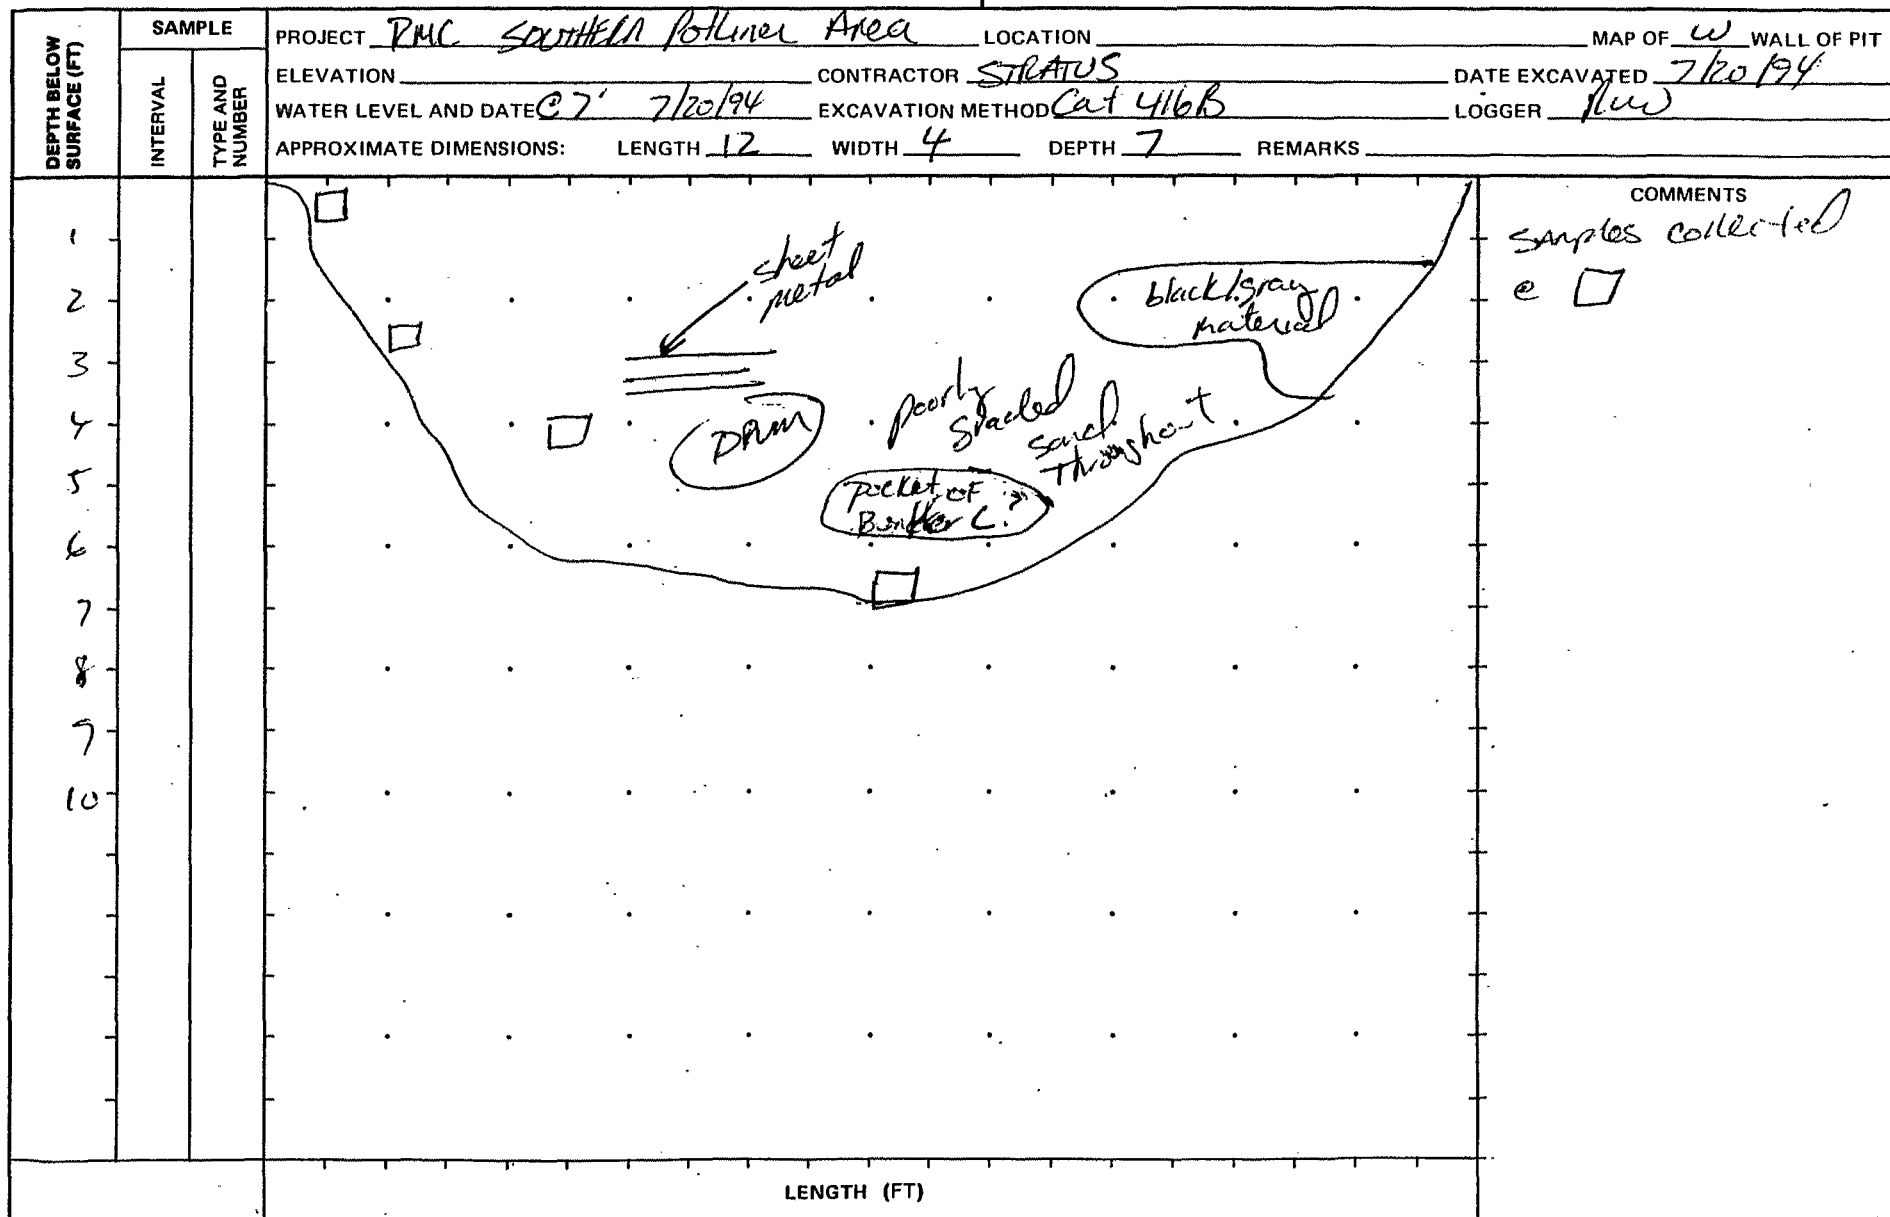 DEPTH BELOW SURFACE (FT)
SAMPLE
INTERVAL
TYPE AND NUMBER
PROJECT RMC SOUTHERN Potliner Area LOCATION MAP OF W WALL OF PIT
ELEVATION CONTRACTOR STRATUS DATE EXCAVATED 7/20/94
WATER LEVEL AND DATE @ 7' 7/20/94 EXCAVATION METHOD Cat 416B LOGGER
APPROXIMATE DIMENSIONS: LENGTH 12 WIDTH 4 DEPTH 7 REMARKS
COMMENTS
Samples collected
@
1
2
3
4
5
6
7
8
9
10
sheet
metal
black/gray
material
poorly
graded
sand
Throughout
Drum
pocket of
Bunker C.?
LENGTH (FT)